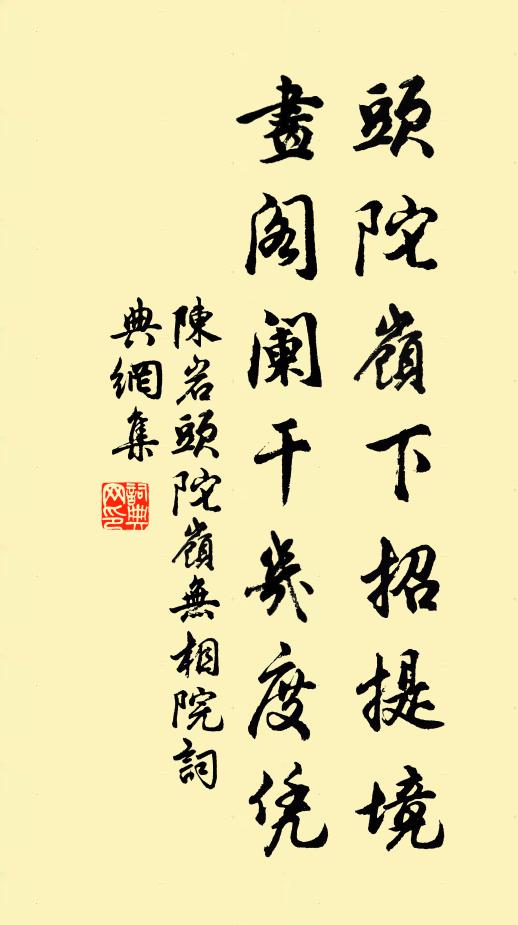 頭陀嶺下招提境
畫閣阑干幾度凭
陳岩頭陀嶺無相院詞
典網集
詞典網印